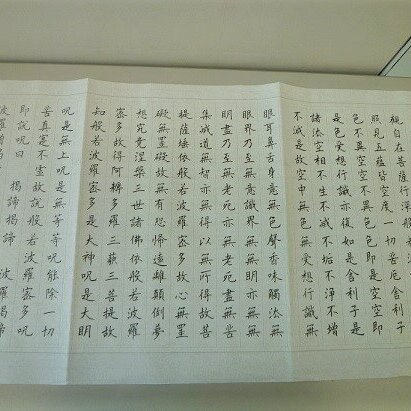 觀自在菩薩行深般
照見五蘊皆空度一切苦厄舍利子
色不異空空不異色色即是空空即
是色受想行識亦復如是舍利子是
諸法空相不生不滅不垢不淨不增
不減是故空中無色無受想行識無
眼耳鼻舌身意無色聲香味觸法無
眼界乃至無意識界無無明亦無無
明盡乃至無老死亦無老死盡無苦
集滅道無智亦無得以無所得故菩
提薩埵依般若波羅蜜多故心無罣
礙無罣礙故無有恐怖遠離顛倒夢
想究竟涅槃三世諸佛依般若波羅
蜜多故得阿耨多羅三藐三菩提故
知般若波羅蜜多是大神呪是大明
呪是無上呪是無等等呪能除一切
苦真實不虛故說般若波羅蜜多呪
即說呪曰 揭諦揭諦 波羅揭諦